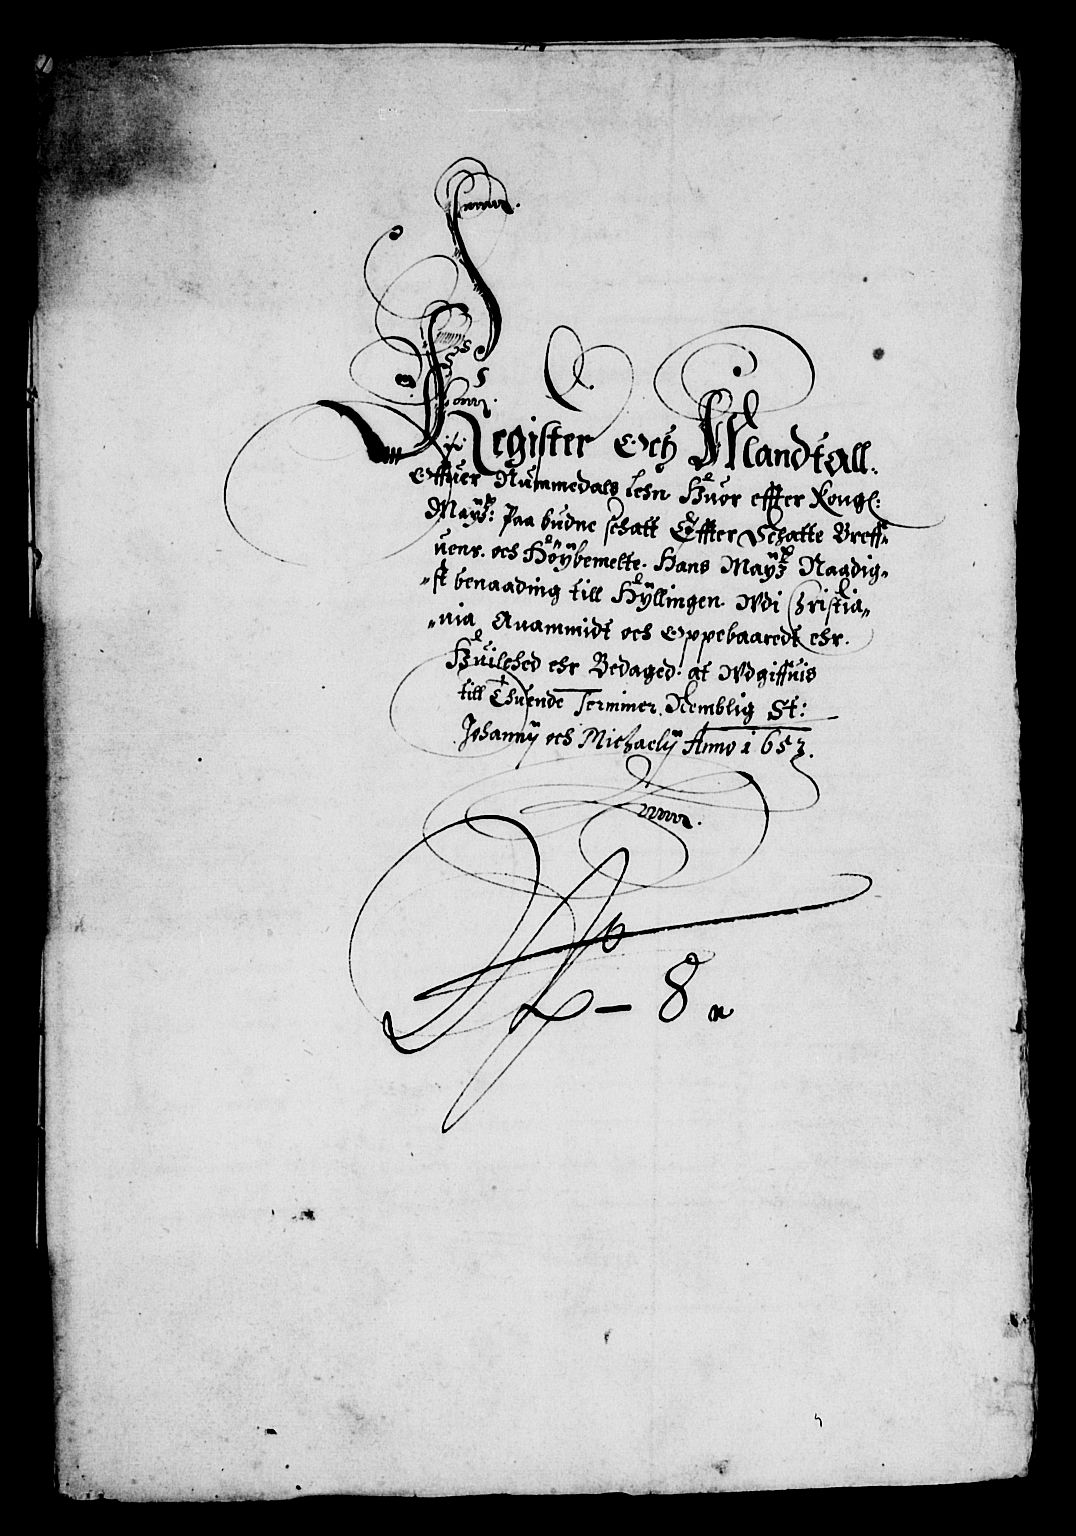 Register Och Mandtall.
Offuer Nummedals lehn Huor effter Kongl:
Maytz: Paa budne schatt Effter Schatte Breff„
uenr. och Höybemelte. Hans Maytz Naadig„
„st benaading till Hyllingen. Wdi Christia„
„nia Anammidt och Oppebaaredt ehr.
Huilched ehr Bedaged. at Wdgiffuis
till Thuende Terminer. Nemblig St:
Johannÿ och Michaelÿ Anno 1653.
No
8